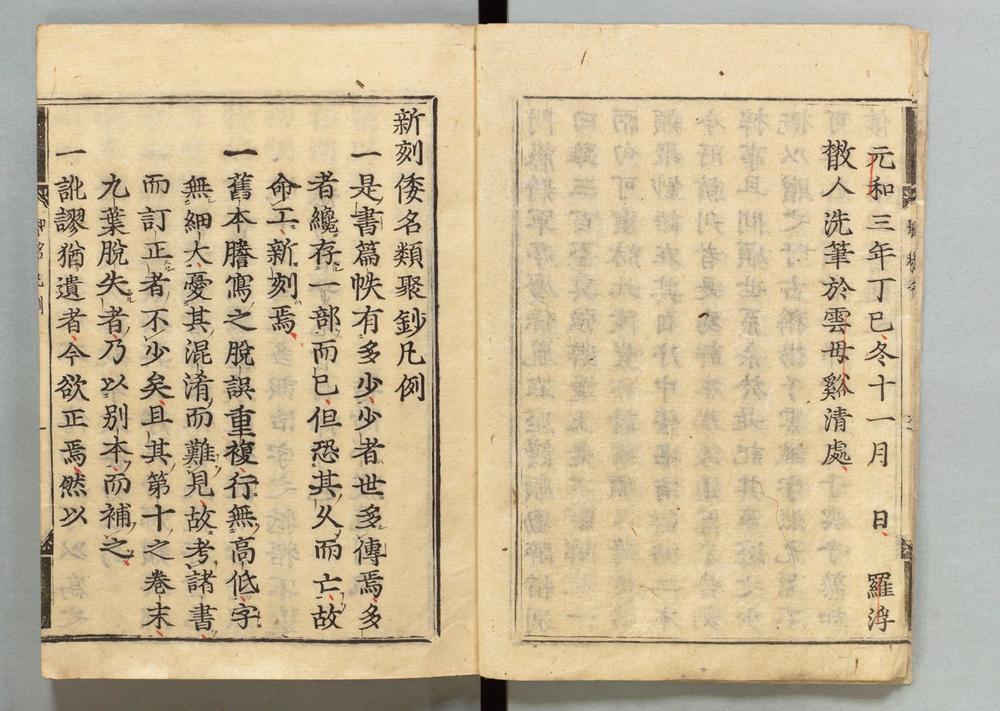 元和三年丁巳冬十一月　日　羅浮
散人洗筆於雲母谿清處
新刻倭名類聚鈔凡例
一是書篇帙有多少少者世多傳焉多
者纔存一部而已但恐其久而亡故
命工新刻焉
一舊本謄寫之脫誤重複行無高低字
無細大憂其混淆而難見故考諸書
而訂正者不少矣且其第十之卷末
九葉脫失者乃以別本而補之
一訛謬猶遺者今欲正焉然以